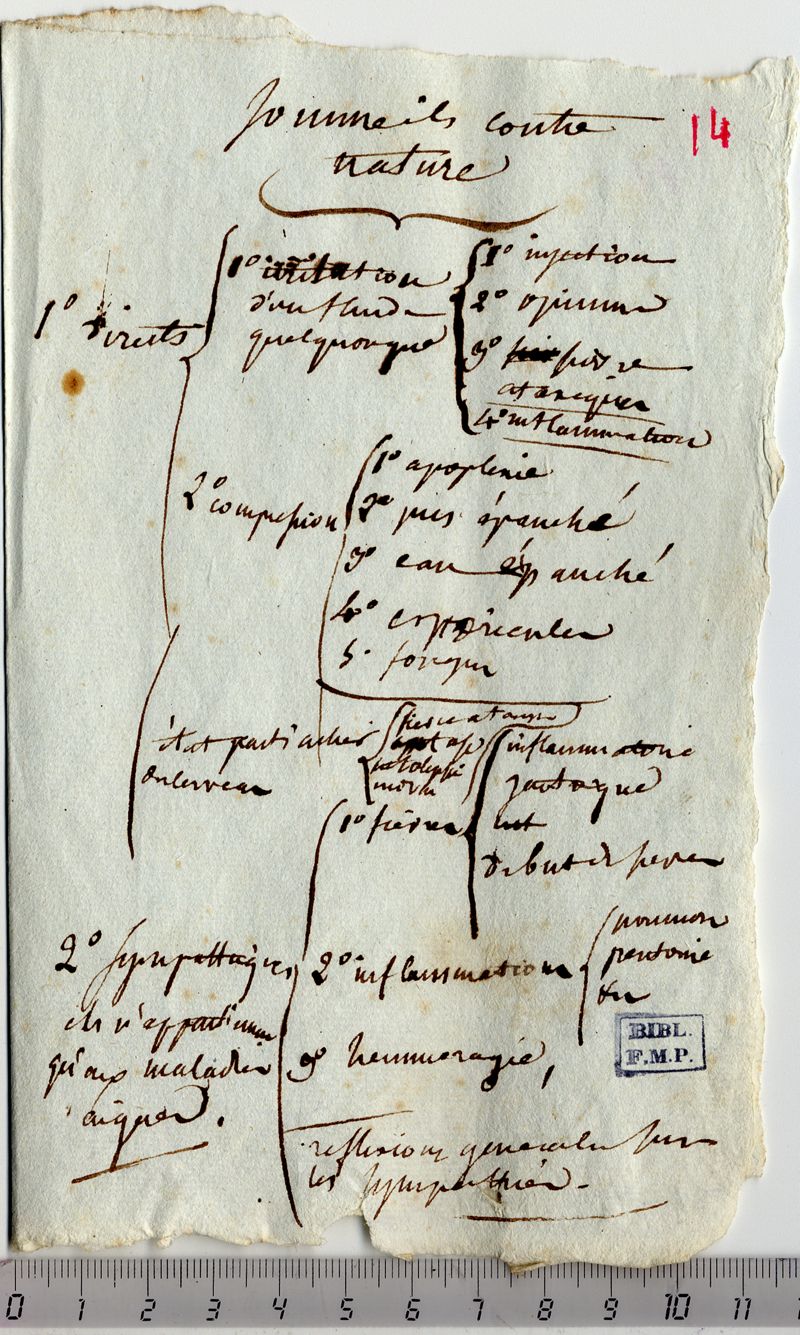 Sommeils contre
nature
14
1° directs
1° irritation
d'un fluide
quelquonque
1° injection
2° opium
3° fievre
ataxique
4° inflammation
2° compression
1° apoplexie
2° pus épanché
3° eau épanché
4° esquilles
5° fongus
état particulier
du cerveau
fievre ataxique
catalepsie
1° fievre
inflammatoire
gastrique
debut de fievre
2° sympathiques
ils n'appartienn
qu'aux maladies
aigues.
2° inflammation
poumon
peritoine
&c
3° hemmoragie,
BIBL.
F.M.P.
reflexions generales sur
les sympathies.
0 1 2 3 4 5 6 7 8 9 10 11